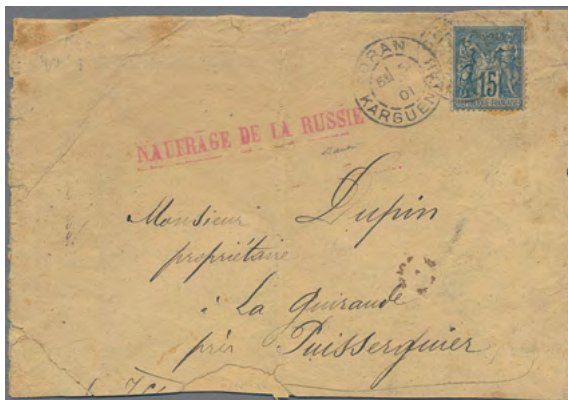 ORAN
5
01
KARGUENTAH
15
NAUFRAGE DE LA RUSSIE
Monsieur Dupin
propriétaire
à La Guiraude
près Puisserguier